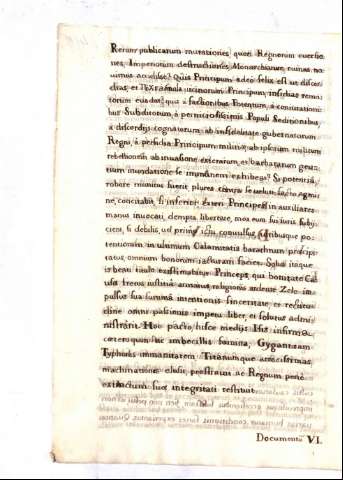 Rerum publicarum mutationes, quot Regnorum eversio-
nes, Imperiorum destructiones, Monarchiarum ruinas, na-
Quis Principum adeo felix est ut discor-
dias, et vicinorum Principum, insidias remo-
a factionibus Potentum, a coniurationi-
bus Subditorum, a perniciosissimis Populi Seditionibus,
a discordijs cognatorum, ab infidelitate gubernatorum
Regni, a perfidia Principum militiae, ab ipsarum militum
rebellione, ab invasione exterarum, et barbararum gen-
tium inundatione se immunem exhibeat? Si potentia,
robore munitus fuerit plures contra se
ne, concitabit, si inferior exteri Principes in auxiliares
manus invocati, dempta libertate, mox eum sui iuris subij-
cient, si debilis, vel primo ictu convulsus, Viribusque po-
tentioribus in ultimum Calamitatis barathrum praecipi-
tatus, omnium bonorum iacturam faciet. Solus itaque
is beati titulo existimabitur Princeps, qui bonitate Cau-
sae fretus iustitiae armatus, religionis ardente Zelo im-
pulsus sua summa intentionis sinceritate, et rectitu-
dine omni passionis impetu liber, et solutus admi-
nistrarit. Hoc pacto, hisce medijs Isis infirma
caeteroquin, sic imbecillis foemina, Gygantaeam
Typhonis immanitatem Titanumque atrocissimas
machinationes elusit, perstravit ac Regnum pene
extinctum suae integritati restituit.
Documentũ VI.